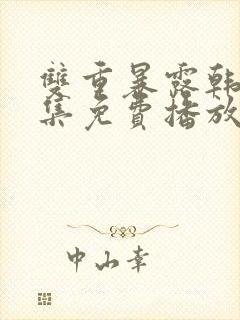 雙重暴露韩
集免費播放
中山幸